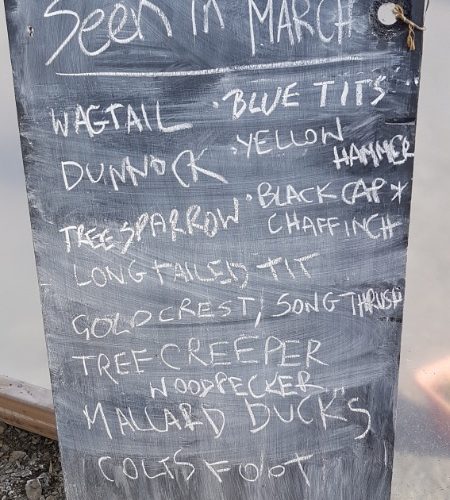 Seen in MARCH
WAGTAIL · BLUE TITS
DUNNOCK · YELLOW HAMMER
TREE SPARROW · BLACK CAP *
CHAFFINCH
LONG TAILED TIT
GOLDCREST, SONG THRUSH
TREE CREEPER
WOODPECKER
MALLARD DUCKS
COLTS FOOT